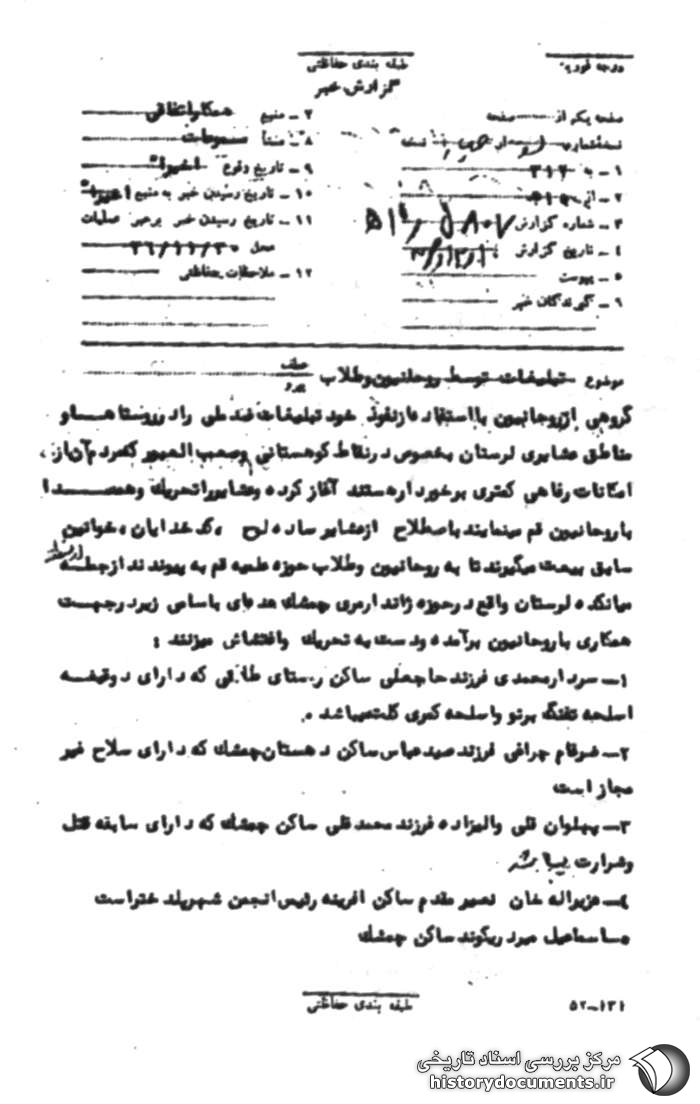 درجه فوریت
طبقه بندی حفاظتی
گزارش خبر
صفحه یکم از صفحه
نسخه شماره از نسخه
۱ـ به ۳۱۲
۲ـ از
۳ـ شماره گزارش
۴ـ تاریخ گزارش
۵ـ پیوست
۶ـ گیرندگان خبر
۷ـ منبع همکار افتخاری
۸ـ منشأ مسموعات
۹ـ تاریخ وقوع اخیراً
۱۰ـ تاریخ رسیدن خبر به منبع اخیراً
۱۱ـ تاریخ رسیدن خبر برهبر عملیات
محل ۳۶/۱۱/۳۰
۱۲ـ ملاحظات حفاظتی
موضوع تبلیغات توسط روحانیون وطلاب
گروهی ازروحانیون بااستفاده ازنفوذ خود تبلیغات ضد ملی را در روستاها و
مناطق عشایری لرستان بخصوص در نقاط کوهستانی وصعب العبور که مردم آن از
امکانات رفاهی کمتری برخوردارهستند آغاز کرده وعشایرراتحریك وهمصدا
باروحانیون قم مینمایند باصطلاح ازعشایر ساده لوح ، کدخدایان ، خوانین
سابق بیعت میگیرند تا به روحانیون وطلاب حوزه علمیه قم به پیوندند ازجمله
میانکده لرستان واقع درحوزه ژاندارمری چمشك عده ای باسامی زیردرجهت
همکاری باروحانیون برآمده ودست به تحریك واغتشاش میزنند :
۱ـ سردارمحمدی فرزند حاجعلی ساکن رستای طالقی که دارای دوقبضه
اسلحه تفنگ برنو واسلحه کمری کلت میباشد .
۲ـ ضرغام چراغی فرزند صیدعباس ساکن دهستان چمشك که دارای سلاح غیر
مجاز است
۳ـ پهلوان قلی والیزاده فرزند محمد قلی ساکن چمشك که دارای سابقه قتل
وشرارت میباشد
۴ـ عزیزاله خان نصیر مقدم ساکن افرینه رئیس انجمن شهرپلدختراست
۵ـ اسماعیل میردریکوند ساکن چمشك
طبقه بندی حفاظتی
۵۲ـ۱۳۱
مرکز بررسی اسناد تاریخی
historydocuments.ir